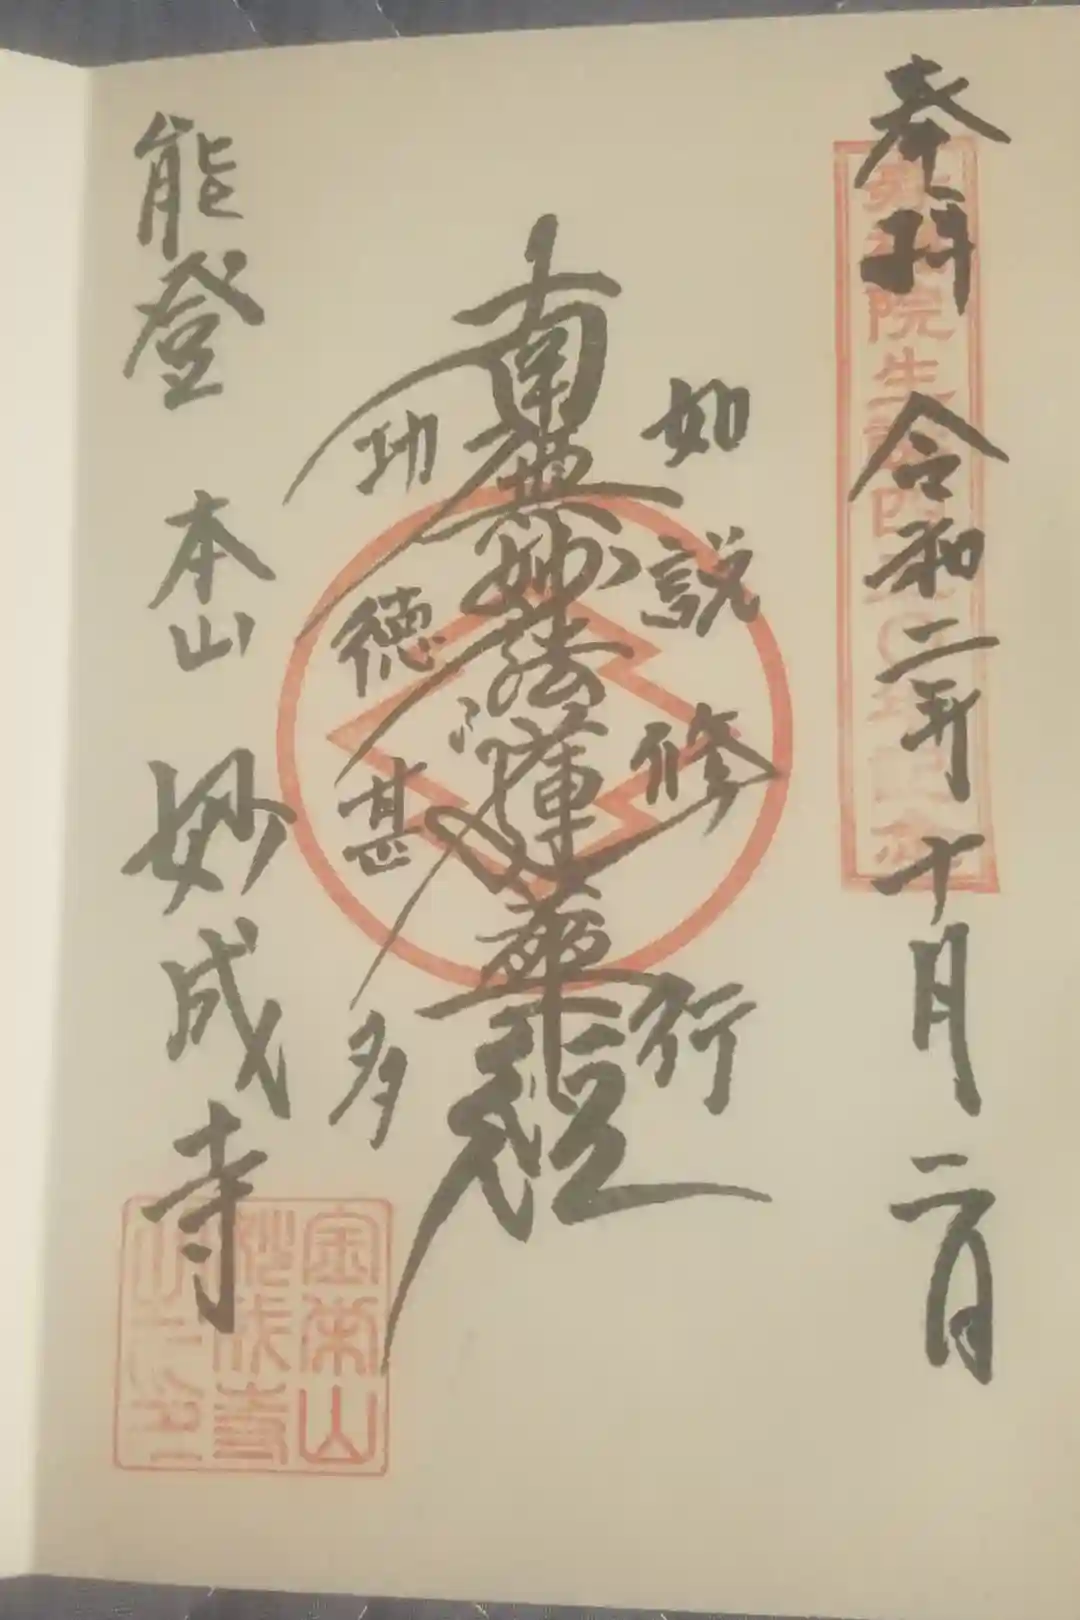 奉拝 令和二年十月二日
如説修行
南無妙法蓮華経
功徳甚多
能登 本山 妙成寺
院生
金栄山
妙成寺